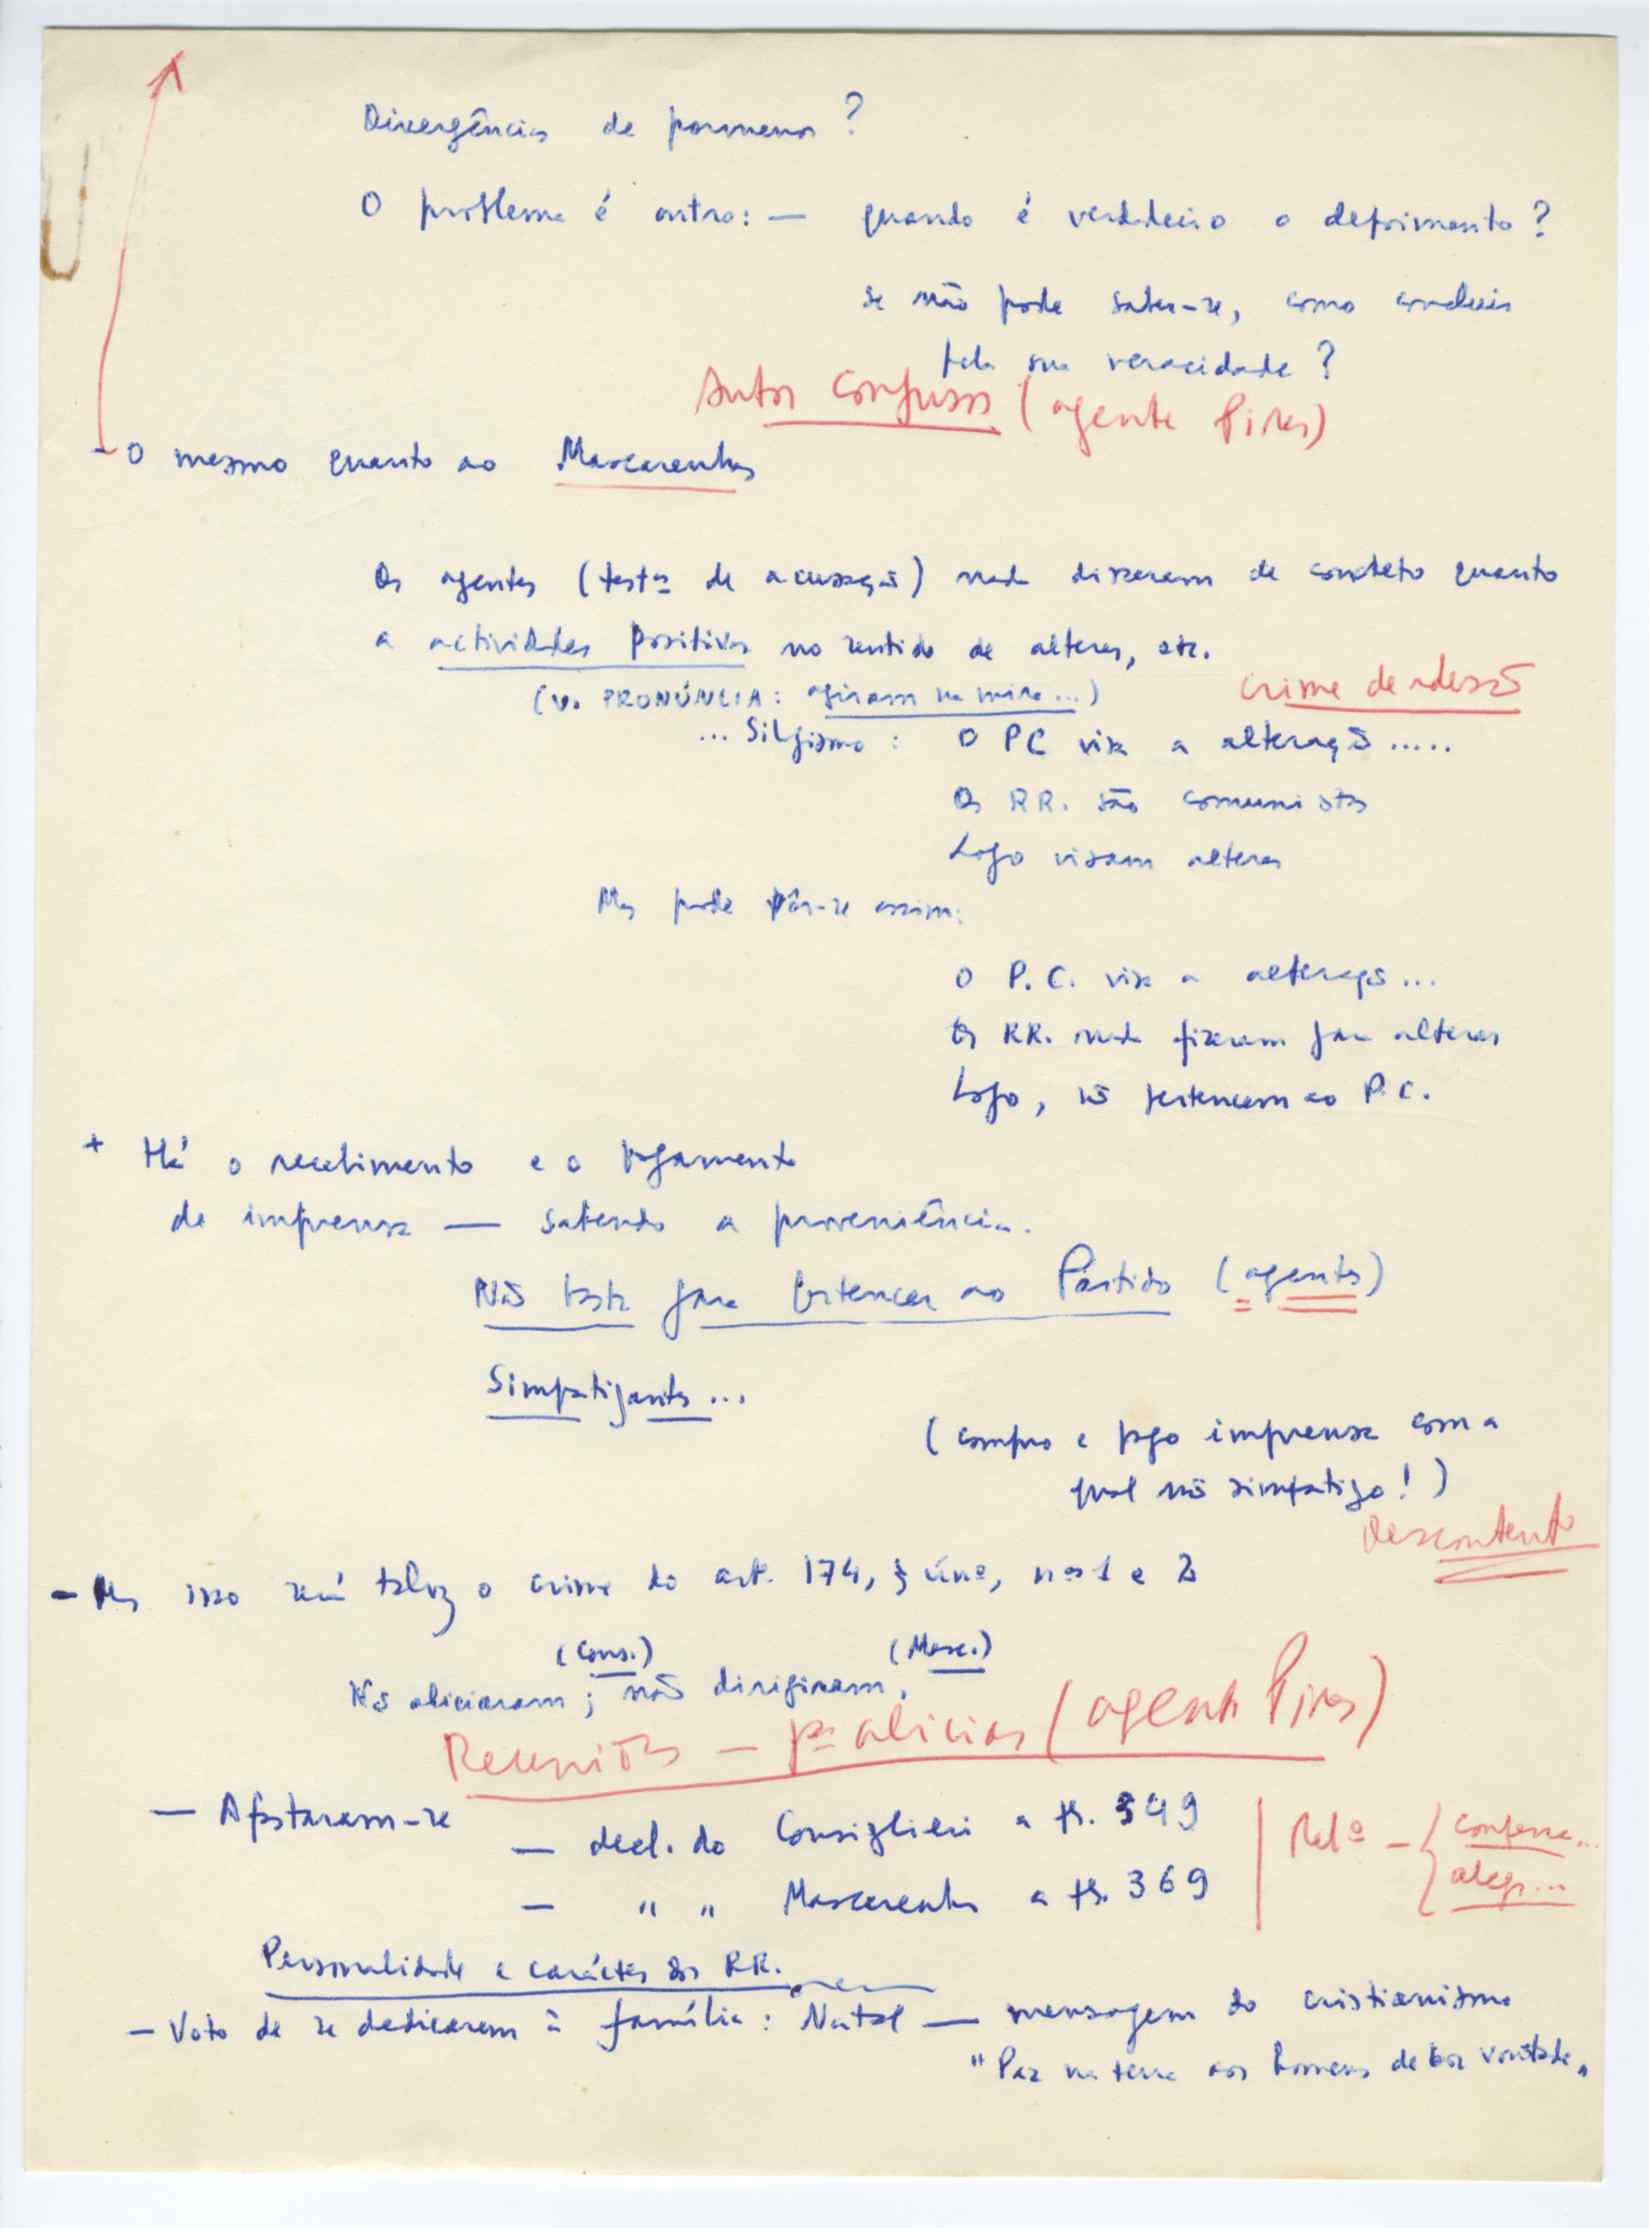 Divergências de pormenor?
O problema é outro: — quando é verdadeiro o depoimento?
Se não pode saber-se, como concluir
pela sua veracidade?
Autos confusos (agente Pires)
- O mesmo quanto ao Mascarenhas
Os agentes (testas de acusação) nada disseram de concreto quanto
a actividades positivas no sentido de alterar, etc.
(v. PRONÚNCIA: agiram na mira...)
crime de adesão
... Silogismo: O PC visa a alteração.....
Os RR. são comunistas
Logo visam alterar
Mas pode pôr-se assim:
O P.C. visa a alteração...
Os RR. nada fizeram para alterar
Logo, não pertencem ao P.C.
+ Há o recebimento e o pagamento
da imprensa — sabendo a proveniência.
Não basta para pertencer ao Partido (agentes)
Simpatizantes...
(compro e pago imprensa com a
qual não simpatizo!)
Descontento
- Mas isso será talvez o crime do art. 174, § únº, nos 1 e 2
(Cons.) (Masc.)
Não aliciaram; não dirigiram,
Reuniões — pª aliciar (agente Pires)
— Afastaram-se
— decl. do Consiglieri a fs. 349
— " " Mascarenhas a fs. 369
Relº — { confessa...
alega...
Personalidade e carácter dos RR.
— Voto de se dedicarem à família: Natal — mensagem do cristianismo
"Paz na terra aos homens de boa vontade"